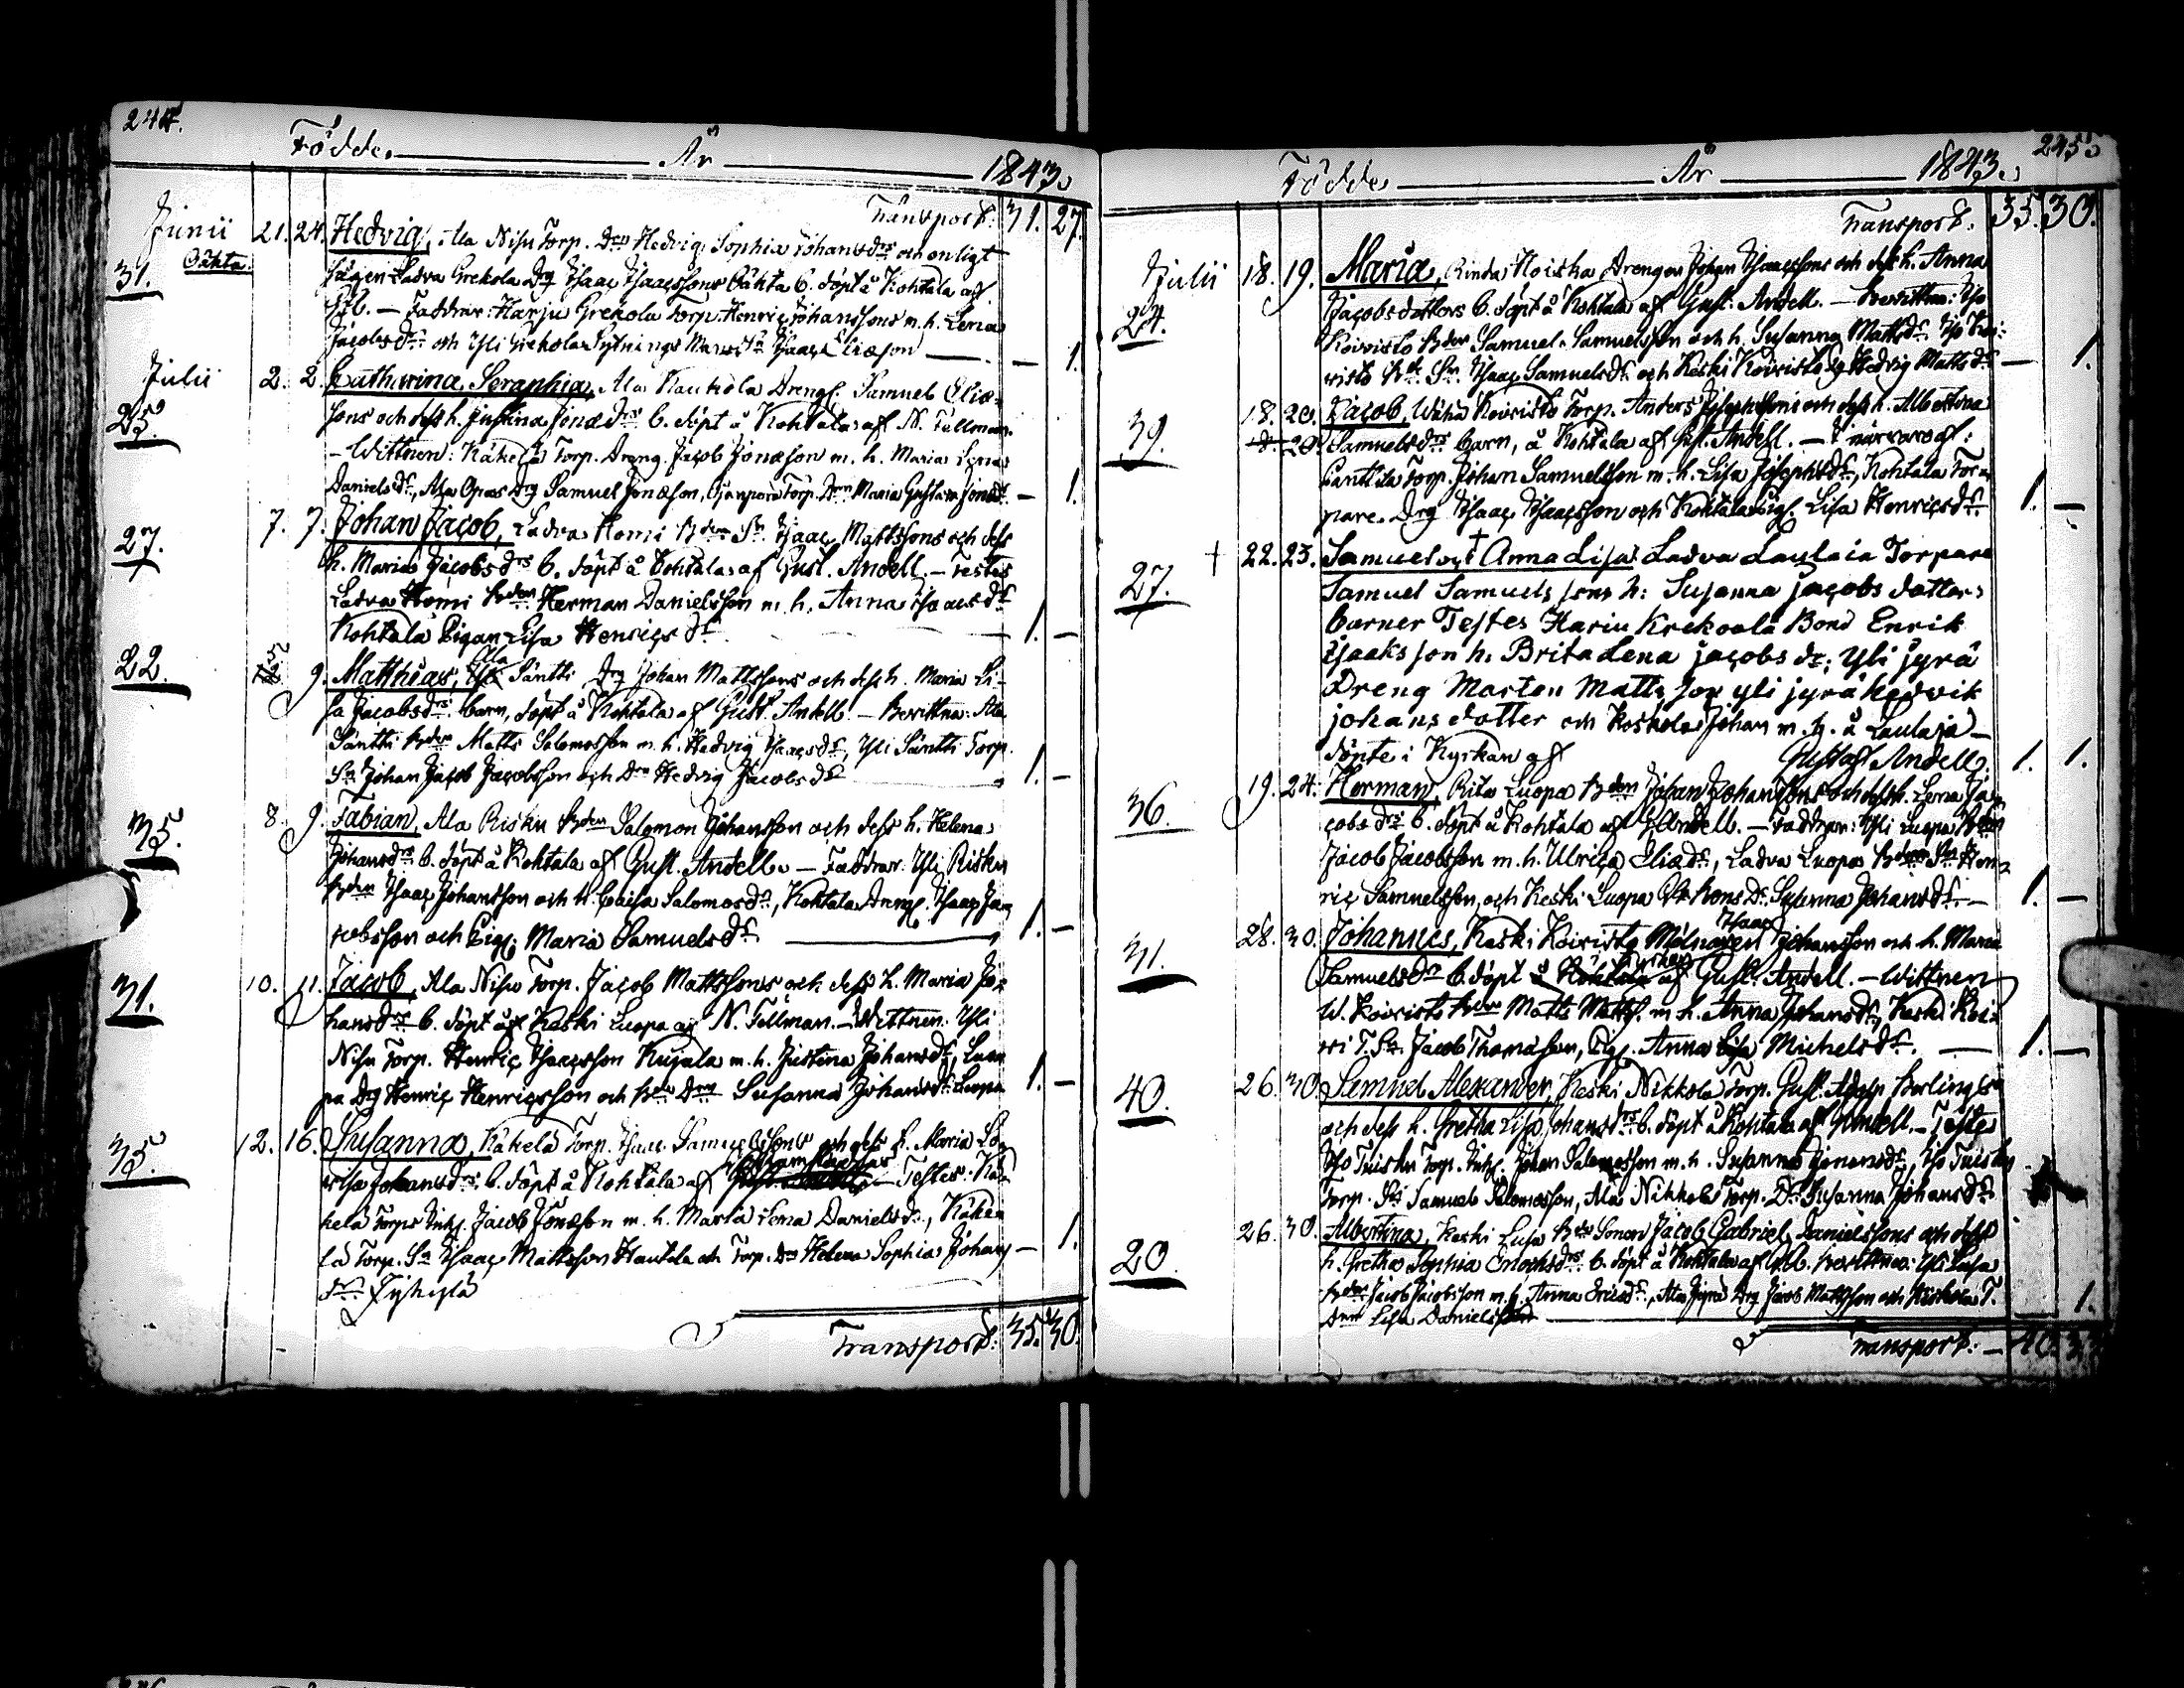 244.
Födde. År 1843.
Transport: 31. 27.
Junii 21. 24. Hedvig, Ala Nisu Torp. Drs Hedvig Sophia Johansdrs och enligt
31. Oäkta. sägen Ladva Grekola Drg Isaac Isaacssons Oäkta b. döpt å Kohtala af
— Faddrar: Harju Grekola Torp. Henric Johanssons m. h. Lena
Jacobsdr och Yli Grekola Isaac Eliæson — — 1.
Julii 2. 2. Catharina Seraphia, Ala Kauhola Drengs. Samuel Eliæ-
25. sons och dess h. Justina Jonædrs b. döpt å Kohtala af N. Fellman.
— Wittnen: Käkelä Torp. Dreng. Jacob Jonæson m. h. Maria Lena
Danielsdr, Ala Drg Samuel Jonæson, Torp. Drn Maria — 1.
27. 7. 7. Johan Jacob, Ladva Homi Bden Sn Isaac Mattssons och dess
h. Maria Jacobsdrs b. döpt å Kohtala af Gust. Andell. — Testes
Ladva Homi Bden Herman Danielsson m. h. Anna Isaacsdr
Kohtala Pigan Lisa Henricsdr — 1. —
22. 5 9. Matthias, Ala Säntti Drg Johan Mattssons och dess h. Maria Li-
sa Jacobsdrs barn, döpt å Kohtala af Gust. Andell — Bevittna: Ala
Säntti Bden Matts Salomosson m. h. Hedvig Isaacsdr, Yli Säntti Torp.
Sn Johan Jacob Jacobsson och Drn Hedvig Jacobsdr — 1. —
35. 8. 9. Fabian, Ala Risku Bden Salomon Johansson och dess h. Helena
Johansdrs b. döpt å Kohtala af Gust. Andell. — Faddrar: Yli Risku
Bden Isaac Johansson och h. Caisa Salomosdr, Kohtala Drengs. Isaac Ja-
cobsson och Pigs. Maria Samuelsdr — 1. —
31. 10. 11. Jacob, Ala Nisu Torp. Jacob Mattssons och dess h. Maria Jo-
hansdrs b. döpt å Keski Luopa af N. Fellman. — Wittnen: Yli
Nisu Torp. Henric Isaacsson Kujala m. h. Justina Johansdr, Luo-
pa Drg Henric Henricsson och Bde Drn Susanna Johansdr Luopa 1. —
35. 12. 16. Susanna, Käkelä Torp. Isaac Samuelssons och dess h. Maria Lo-
visa Johansdrs b. döpt å Kohtala af — Testes: Kä-
kelä Torps Inhs. Jacob Jonæson m. h. Maria Lena Danielsdr, Käke-
lä Torp. Sn Isaac Mattsson Hautala och Torp. Drn Helena Sophia Johans — 1.
dr
Transport: 35. 30.
245.
Födde År 1843.
Transport. 35. 30.
Julii 18. 19. Maria, Rinda Koiska Drengen Johan Isaacssons och dess h. Anna
24. Jacobsdotters b. döpt å Kohtala af Gust. Andell. — Bevittna: Iso
Koivisto Bden Samuel Samuelsson och h. Susanna Mattsdr, Iso Koi-
visto Sn Isaac Samuelsdr och Keski Koivisto Hedvig Mattsdr — 1.
39. 18. 20. Jacob, Wähä Koivisto Torp. Anders Josephssons och dess h. Albertina
18. 20. Samuelsdrs barn, å Kohtala af Gust. Andell. — I närvaro af:
Torp. Johan Samuelsson m. h. Lisa Josephsdr, Kohtala Tor-
pare Drg Isaac Isaacsson och Kohtala Pigs. Lisa Henricsdr 1. —
27. † 22. 23. Samuel och † Anna Lisa Ladva Laulaia Torpare
Samuel Samuels sons h: Susanna jacobs dotter
barner Testes Hariu Krekoola Bond Enrik
Isaaks son h. Brita Lena jacobs dr; Yli jyrä
Dreng Morten Matts son yli jyrä hedvik
johans dotter och Koskela Johan m. h. å Laulaja —
döpte i Kyrkan af Gustaf Andell. 1. 1.
36. 19. 24. Herman, Rita Luopa Bden Johan Johanssons och dess h. Lena Ja-
cobsdrs b. döpt å Kohtala af G. Andell. — Faddrar: Yli Luopa Bden
Jacob Jacobsson m. h. Ulrica Eliædr, Ladva Luopa Bdens Sn Hen-
ric Samuelsson, och Keski Luopa Dr Susanna Johansdr — 1. —
31. 28. 30. Johannes, Keski Koivisto Mölnaren Isaac Johansson och h. Maria
Samuelsdrs b. döpt i Kyrkan af Gust. Andell. — Wittnen
W. Koivisto Bden Matts Matts. m. h. Anna Johansdr, Keski Koi-
vi T. Sn Jacob Thomasson, Pigs. Anna Lisa Michelsdr. — 1. —
40. 26. 30. Samuel Alexander, Keski Nikkola Torp. Gust. Adolph
och dess h. Gretha Lisa Johansdrs b. döpt å Kohtala af G. Andell. — Testes
Iso Tuisku Torp. Inhs. Johan Salomosson m. h. Susanna, Iso Tuisku
Torp. Sn Samuel Salomosson, Ala Nikkola Torp. Dr Susanna Johansdr
20. 26. 30. Albertina, Keski Luopa Bden Sonen Jacob Gabriel Danielssons och dess
h. Gretha Sophia Enochsdrs b. döpt å Kohtala af G. A. Bevittna: Yli
Bden Jacob Jacobsson m. h. Anna Ericsdr, Ala Jyrä Drg Jacob Mattsson och Koskela T.
Drn Lisa Danielsdr — 1.
Transport: — 40.